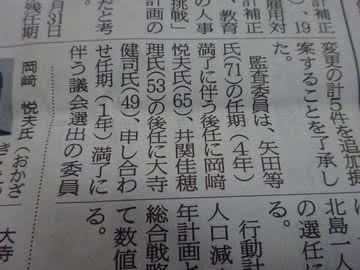 計補正
）、19
雇用対
計補正
、教育
の人事
挑戦」
計画の
だと考
月31日
残任期
変更の計5件を追加提
案することを了承し
た。
監査委員は、矢田等
氏(71)の任期（4年）
満了に伴う後任に岡﨑
悦夫氏(65)、井関佳穂
理氏(53)の後任に大寺
健司氏(49)、申し合わ
せ任期（1年）満了に
伴う議会選出の委員
岡﨑　悦夫氏（おかざ
北島一人
の選任に
る。
行動計
人口減
年計画と
総合戦略
て数値
る。
大寺